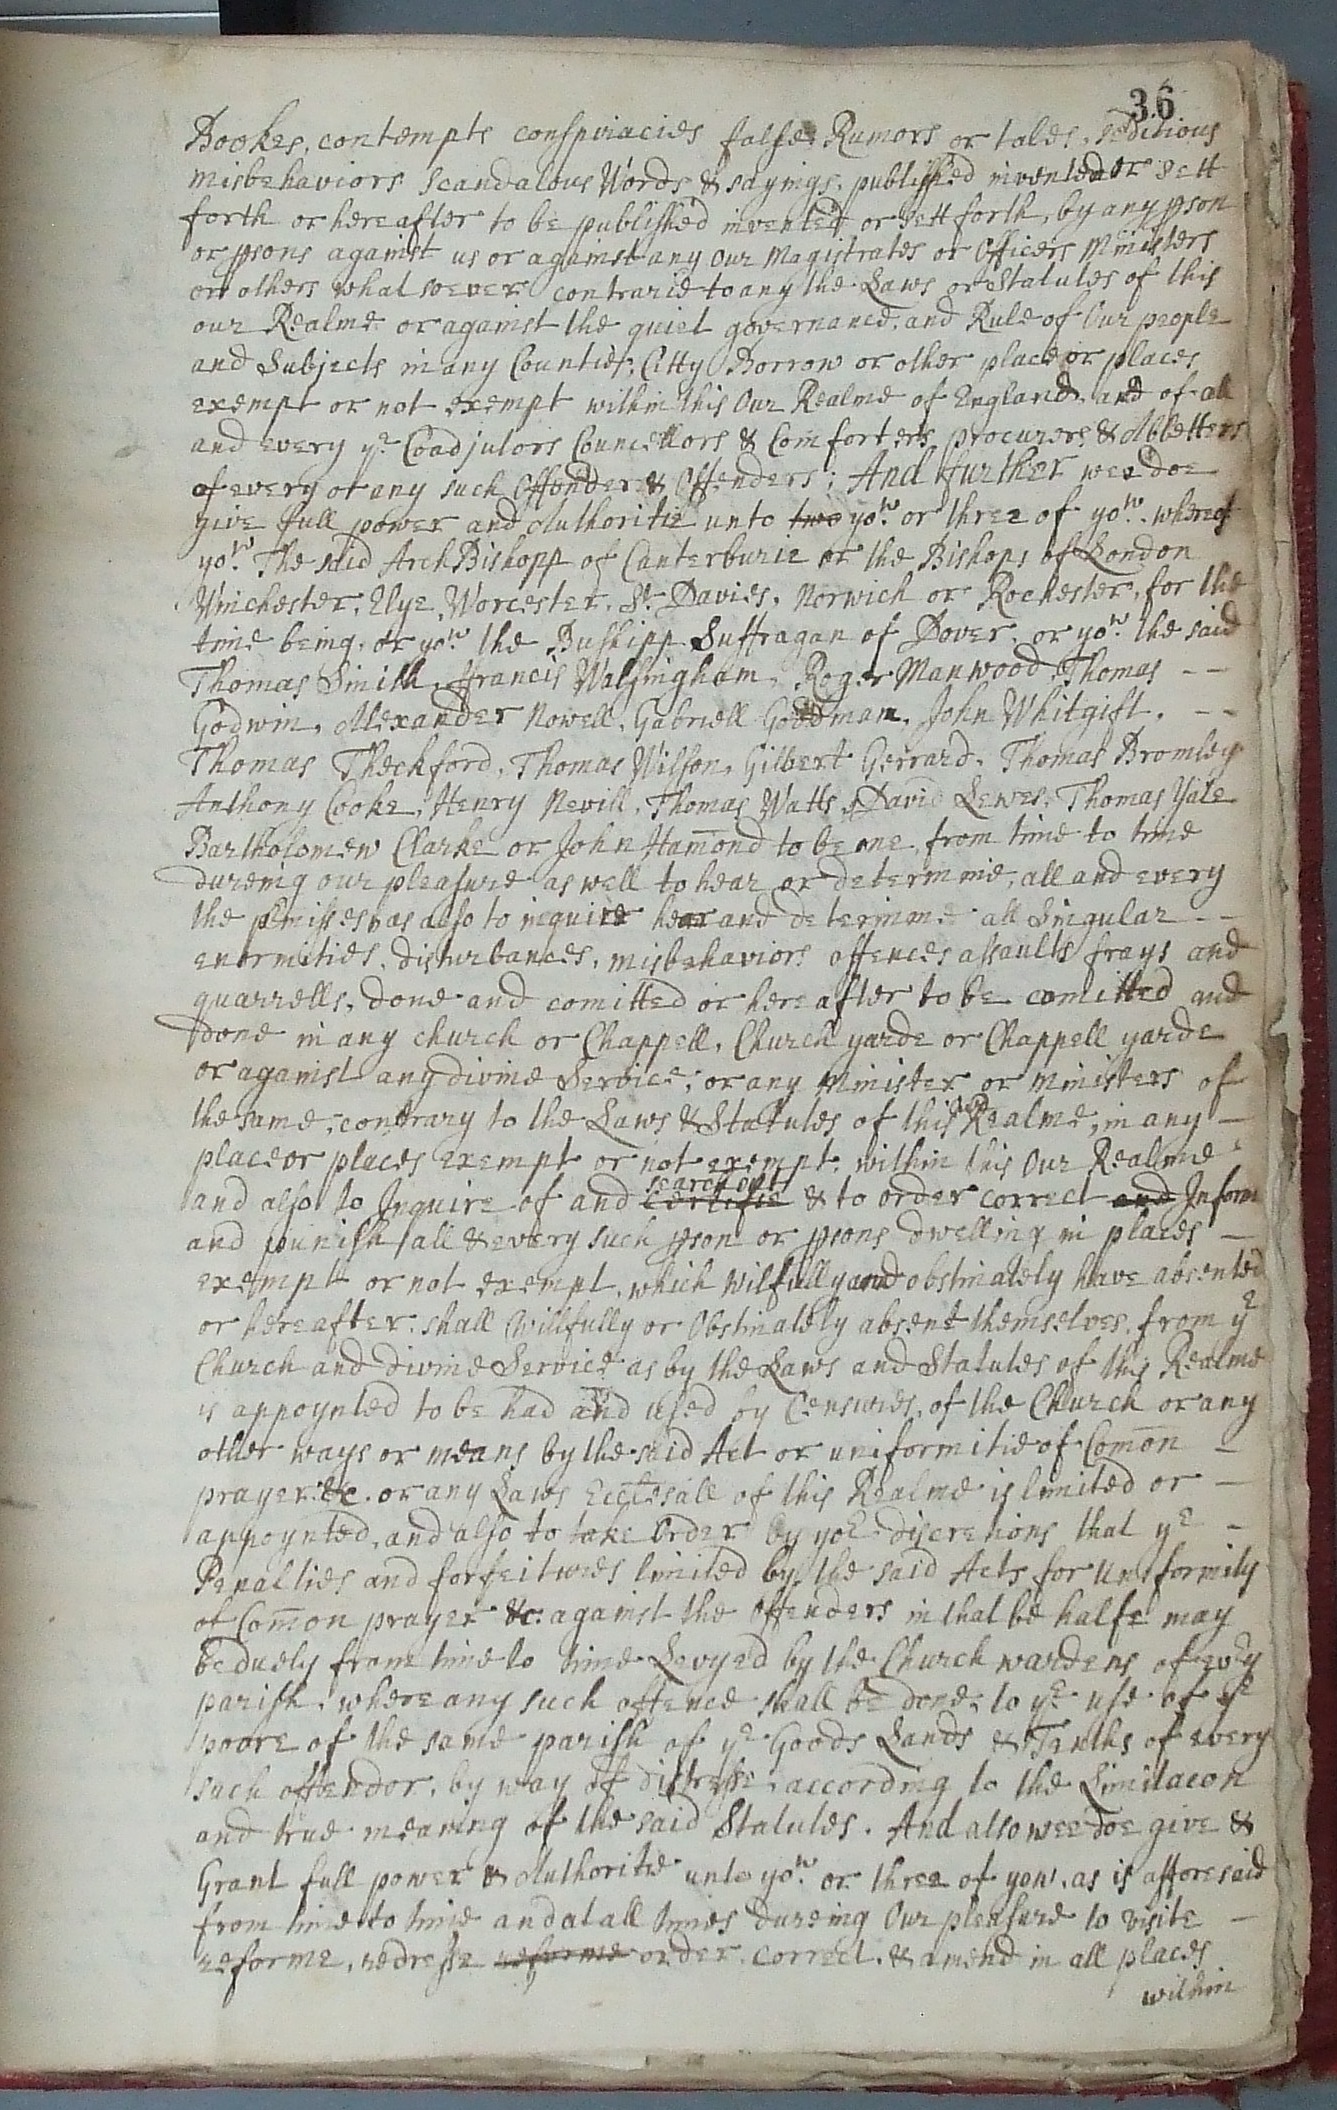 36
Bookes, contempts conspiracies false Rumors or tales, seditious
misbehaviors scandalous Words & sayings, published invented or sett
forth or hereafter to be published invented or sett forth, by any pson
or psons against us or against any our Magistrates or Officers Ministers
or others what soever contrarie to any the Laws or Statutes of this
our Realme or against the quiet governance, and Rule of Our people
and Subjects in any Counties, Citty Borrow or other place or places
exempt or not exempt within this Our Realme of England and of all
and every ye Coadjutors Councellors & Comforters, procurers & Abletters
of every or any such Offender & Offenders; And further wee doe
give full power and Authoritie unto two yow. or three of yow. whereof
yow. The said ArchBishopp of Canterburie or the Bishops of London
Winchester, Elye, Worcester, St. Davies, Norwich or Rochester, for the
time being, or yow. the Bushipp Suffragan of Dover, or yow. the said
Thomas Smith, Francis Walsingham, Roger Manwood Thomas - -
Godwin, Alexander Nowell, Gabriell Goodman, John Whitgift, - -
Thomas Theckford, Thomas Wilson, Gilbert Gerrard, Thomas Bromley
Anthony Cooke, Henry Nevill, Thomas Watts, David Lewes, Thomas Yale
Bartholomew Clarke or John Hamond to be one, from time to time
dureing our pleasure as well to hear or determine, all and every
the pmisses as also to inquire hear and determine all Singular - -
enormities, disturbances, misbehaviors offences assaults frays and
quarrells, done and comitted or hereafter to be comitted and
done in any church or Chappell, Church yarde or Chappell yarde
or against any divine Service, or any Minister or Ministers of
the same, contrary to the Laws & Statutes of this Realme, in any -
place or places exempt or not exempt, within this Our Realme
and also to Inquire of and certifie search out & to order correct and Inform
and punish all & every such pson or psons dwelling in places -
exempt or not exempt, which wilfully and obstinately have absented
or hereafter shall Willfully or Obstinately absent themselves, from ye
Church and divine Service as by the Laws and Statutes of this Realme
is appoynted to be had and used by Censures, of the Church or any
other ways or means by the said Act or uniformitie of Comon -
prayer &c. or any Laws Ecctesall of this Realme is limited or -
appoynted, and also to take Order by yor discretions that ye -
Penalties and forfeitures limited by the said Acts for Uniformity
of Comon prayer &c: against the Offenders in that behalfe may
be duely from time to time Levyed by the Church wardens of every
parish, where any such offence shall be done, to ye use of ye
poore of the same parish of ye Goods Lands & Tenths of every
such offendor, by way of distresse, according to the Limitacon
and true meaning of the said Statutes. And also wee doe give &
Grant full power & Authoritie unto yow. or three of yow, as is afforesaid
from time to time and at all times dureing Our pleasure to visite -
reforme, redresse reforme order, correct, & amend in all places
within